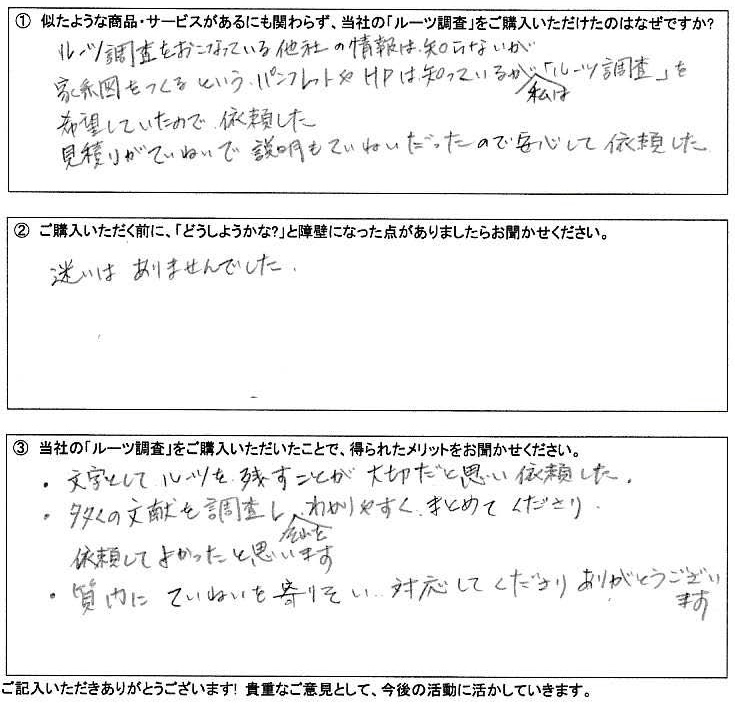 ① 似たような商品・サービスがあるにも関わらず、当社の「ルーツ調査」をご購入いただけたのはなぜですか?
ルーツ調査をおこなっている他社の情報は知らないが
家系図をつくるという、パンフレットや HPは知っているが、私は「ルーツ調査」を
希望していたので、依頼した
見積りがていねいで説明もていねいだったので安心して依頼した
② ご購入いただく前に、「どうしようかな?」と障壁になった点がありましたらお聞かせください。
迷いは ありませんでした.
③ 当社の「ルーツ調査」をご購入いただいたことで、得られたメリットをお聞かせください。
・文字としてルーツを残すことが大切だと思い依頼した.
・多くの文献を調査し、わかりやすく、まとめてくださり.
依頼してよかったと思います
・質内に ていねいを寄りそい.. 対応してくださり ありがとうござい
ます
ご記入いただきありがとうございます! 貴重なご意見として、今後の活動に活かしていきます。